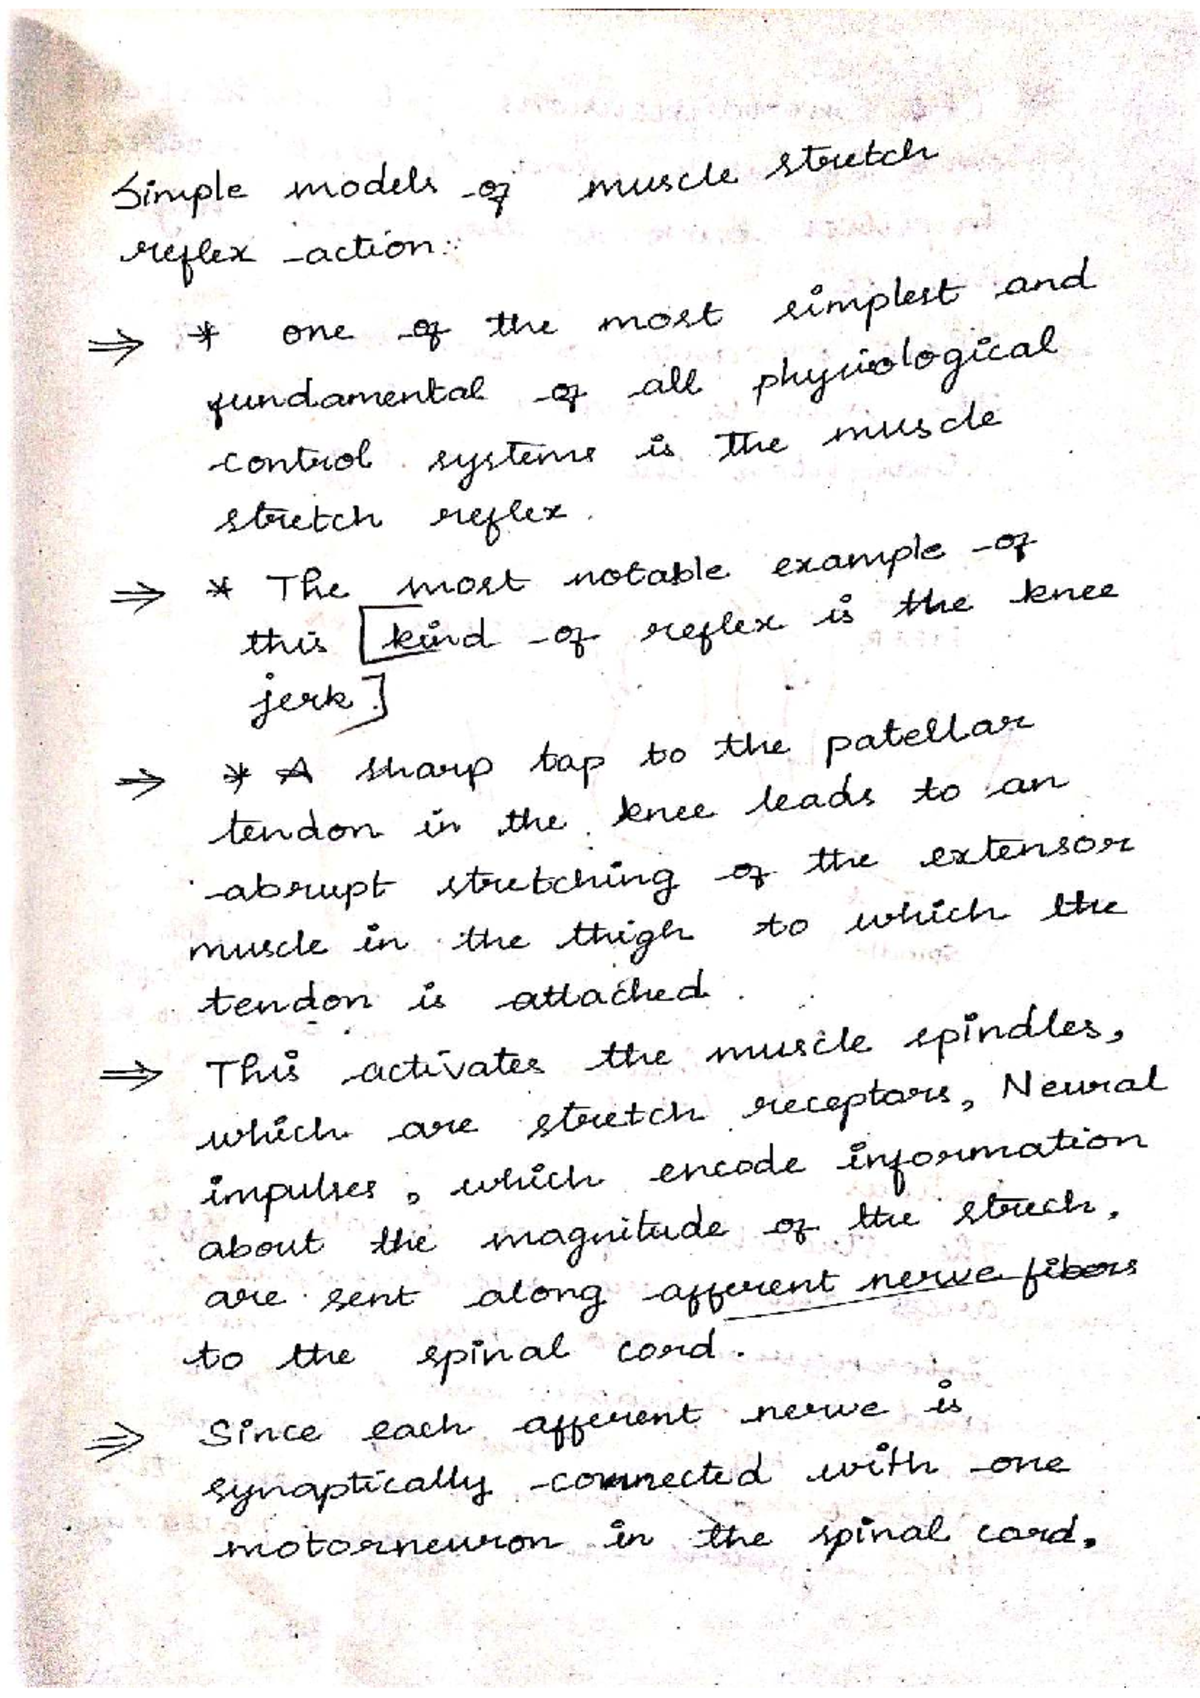 Simple models of muscle stretch
reflex action:
⇒ * one of the most simplest and
fundamental of all physiological
control systems is the muscle
stretch reflex.
⇒ * The most notable example of
this [kind of reflex is the knee
jerk.]
⇒ * A sharp tap to the patellar
tendon in the knee leads to an
abrupt stretching of the extensor
muscle in the thigh to which the
tendon is attached.
⇒ This activates the muscle spindles,
which are stretch receptors, Neural
impulses, which encode information
about the magnitude of the strech,
are sent along afferent nerve fibers
to the spinal cord.
⇒ Since each afferent nerve is
synaptically connected with one
motorneuron in the spinal cord,